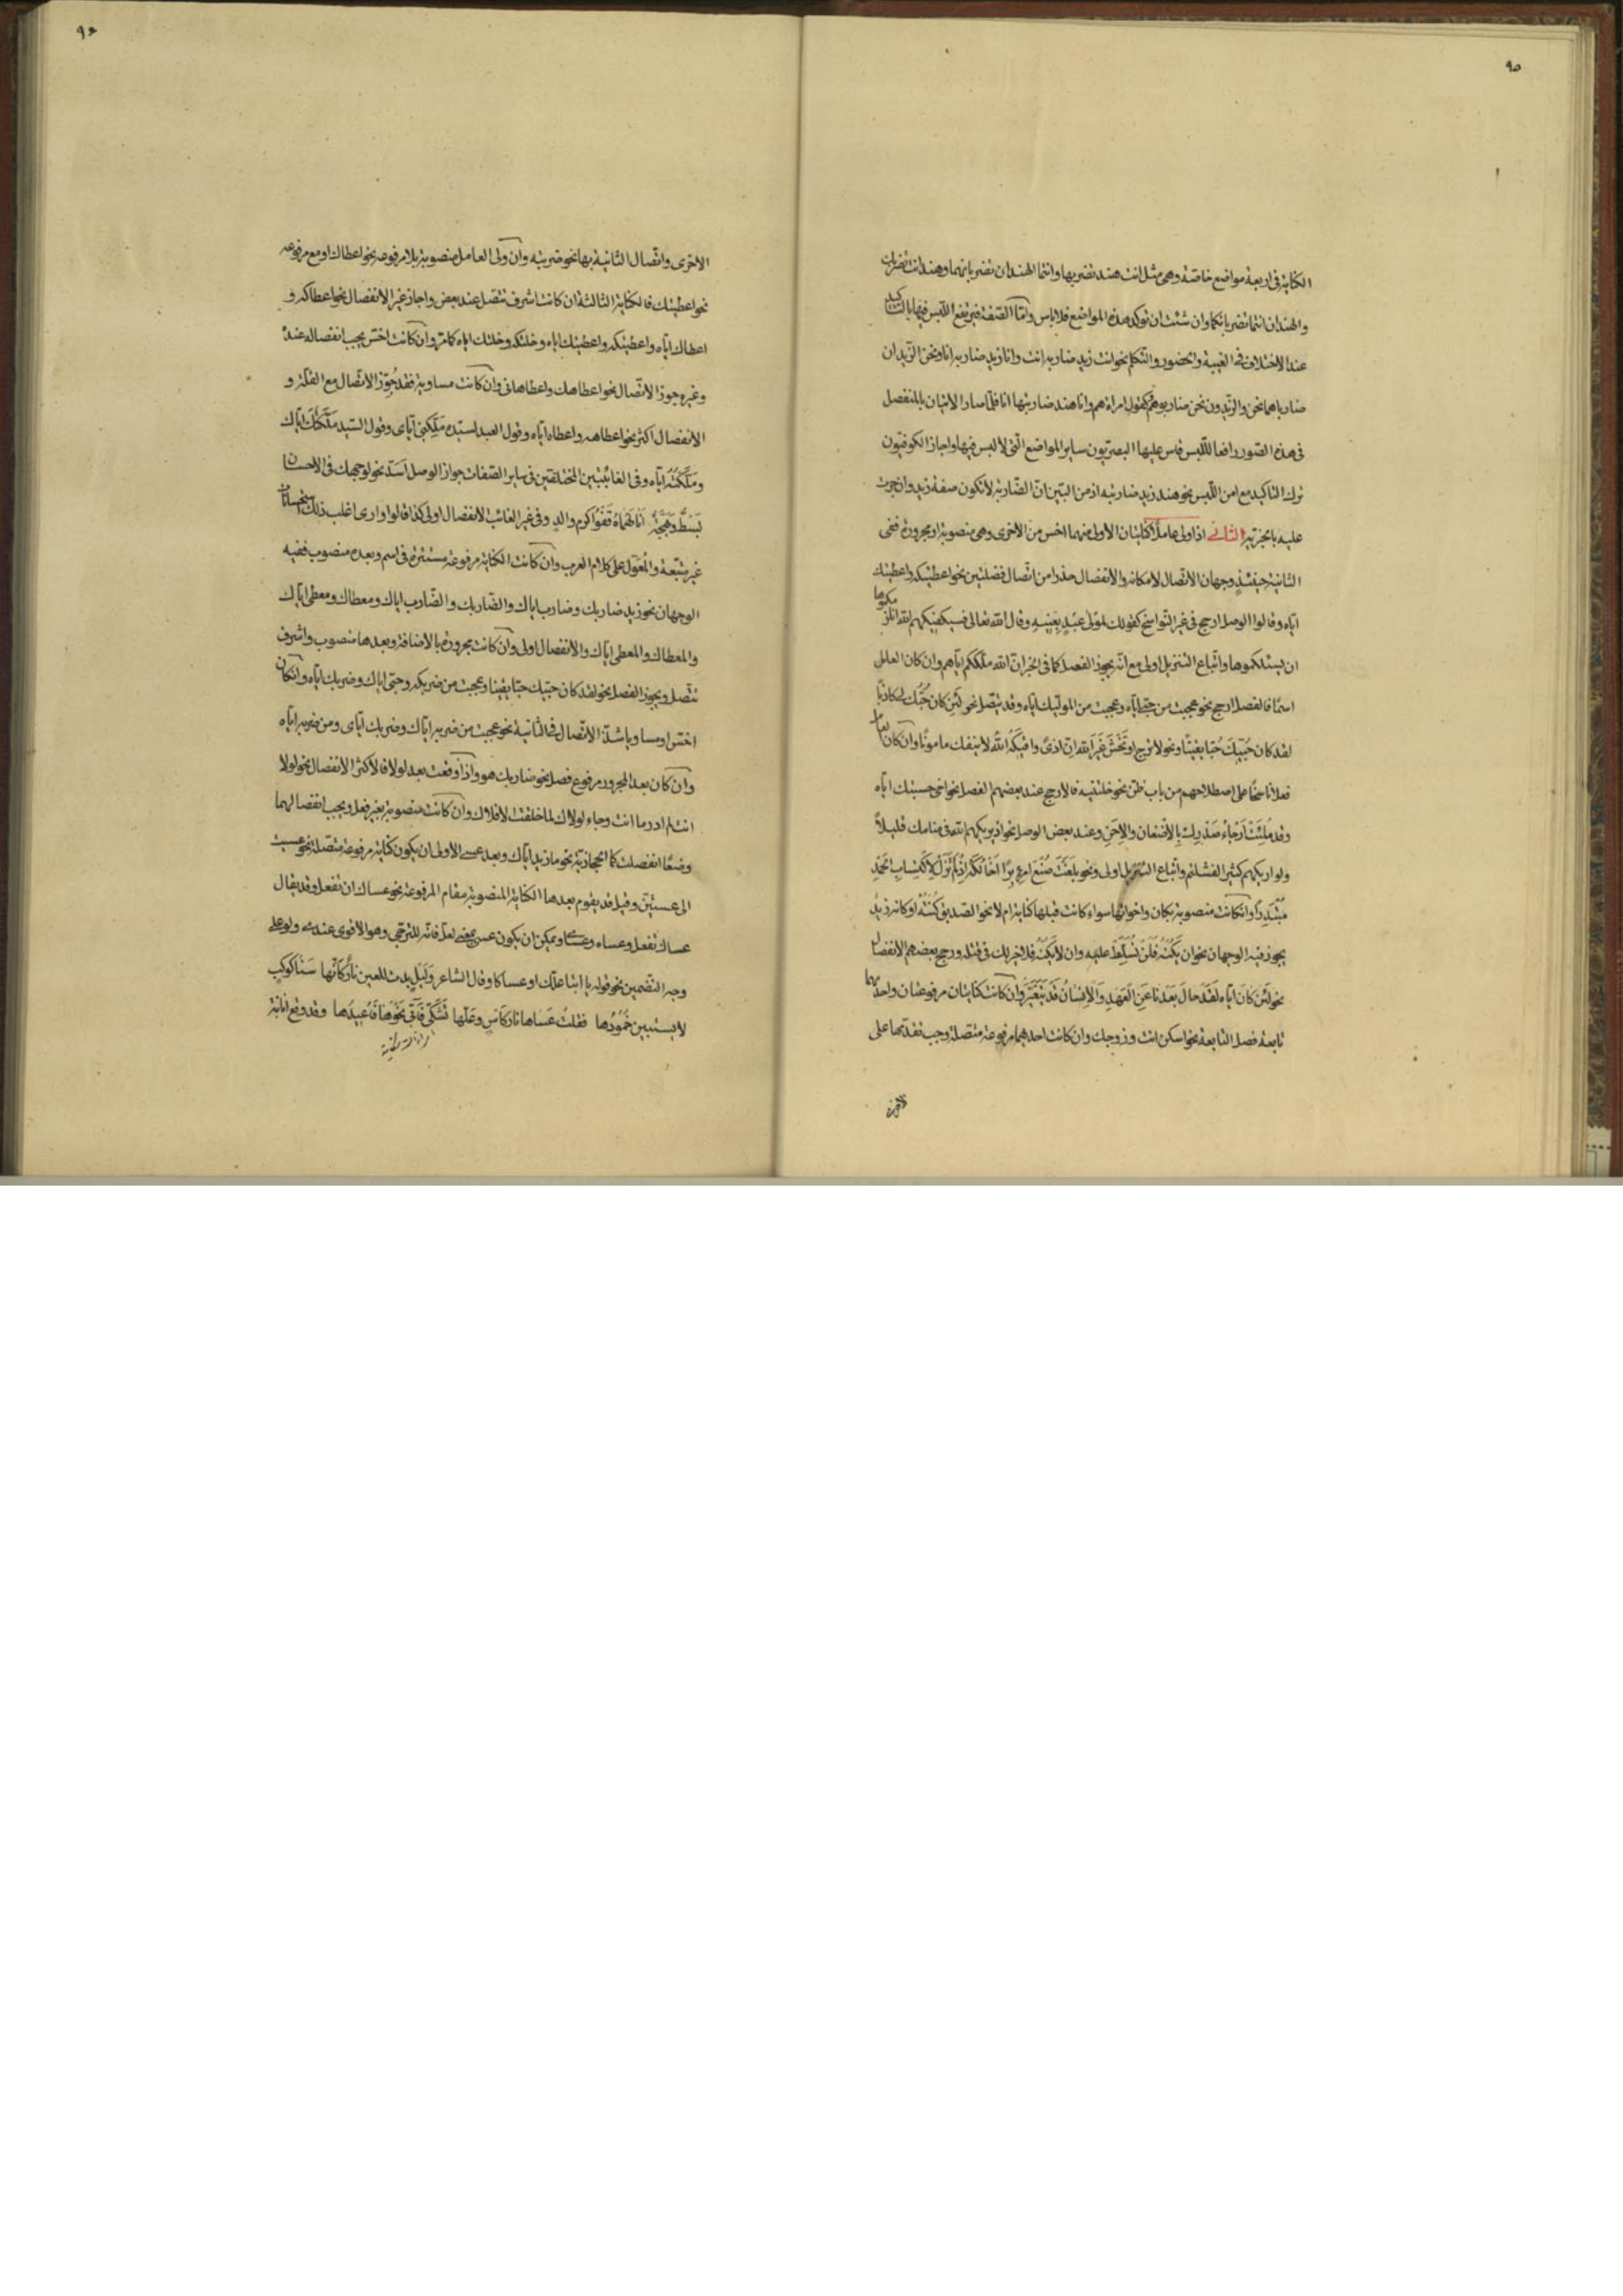 ٩٥
الكناية فى اربعة مواضع خاصة وهى مثل انت هند تضربها وانتما الهندان تضربانهما وهند انت تضربك
والهندان انتما تضربانكما وان شئت ان توكد هذه المواضع فلا باس وامّا الصّفة فيرتفع اللّبس فيها بالتاكيد
عند الاختلاف فى الغيبة والحضور والتكلم نحو انت زيد ضاربه انت وانا زيد ضاربه انا ونحن الزّيدان
ضارباهما نحن والزّيدون نحن ضاربوهم كقول امراة هم وانا هند ضاربتها انا فلمّا صار الاتيان بالمنفصل
فى هذه الصّور رافعا للّبس قاس عليها البصريّون ساير المواضع الّتى لا لبس فيها واجاز الكوفيّون
ترك التاكيد مع امن اللّبس نحو هند زيد ضاربته اذ من البيّن انّ الضّاربة لا تكون صفة زيد وان جرت
عليه بالخبريّة الثانى اذا ولى عاملا كنايتان الاولى منهما اخس من الاخرى وهى منصوبة او مجرورة ففى
الثانية حينئذٍ وجهان الاتّصال لامكانه والانفصال حذرا من اتّصال فضلتين نحو اعطيتكه واعطيتك
ايّاه وقالوا الوصل ارجح فى غير النّواسخ كقولك لمولى عبد بعنيه وقال الله تعالى فسيكفيكهم الله انلزمكموها
ان يسئلكموها واتّباع التّنزيل اولى مع انّه يجوز الفصل كما فى الخبر انّ الله ملّككم ايّاهم وان كان العامل
اسمًا فالفصل ارجح نحو عجبت من حبّى ايّاه وعجبت من الموليك ايّاه وقد يتّصل نحو لئن كان حُبُّك لى كاذبًا
لقد كان حُبّيكَ حُبّا يقينًا ونحو لا ترج او تخش غير الله انّ اذىً واقيكه الله لا ينفك مامونًا وان كان العامل
فعلا ناسخًا على اصطلاحهم من باب ظنّ نحو خلتنيه فالارجح عند بعضهم الفصل نحو اخى حسبتك ايّاه
وقد مُلِئَت ارجاء صدرك بالاضغان والاحن وعند بعض الوصل نحو اذ يريكهم الله فى منامك قليلاً
ولو اريكهم كثيرا لفشلتم واتّباع التنزيل اولى ونحو بلغت صنع امرء برّا اخالكه اذ لم تزل لاكتساب الحمد
مبتدرًا وان كانت منصوبة بكان واخواتها سواء كانت قبلها كناية ام لا نحو الصديق كُنته او كانه زيد
يجوز فيه الوجهان نحو ان يكنه فلن تسلّط عليه وان لا يكنه فلا خير لك فى قتله ورجح بعضهم الانفصال
نحو لئن كان ايّاه لقد حال بعدنا عن العهد والانسان قد يتغيّر وان كانت كنايتان مرفوعتان واحديهما
تابعة فصل التابعة نحو اسكن انت وزوجك وان كانت احديهما مرفوعة متصلة وجب تقديمها على
الاخرى
٩٦
الاخرى واتّصال الثانية بها نحو ضربته وان ولى العامل منصوبة بلا مرفوعه نحو اعطاك او مع مرفوعه
نحو اعطيتك فالكناية الثالثة ان كانت اشرف تتّصل عند بعض واجاز غيره الانفصال نحو اعطاكه و
اعطاك ايّاه واعطيتكه واعطيتك اياه وخلتكه وخلتك اياه كما مرّ وان كانت اخسّ يجب انفصاله عندهٗ
وغيره جوز الاتّصال نحو اعطاهك واعطاهانى وان كانت مساوية فقد جُوّز الاتّصال مع القلّة و
الانفصال اكثر نحو اعطاهه واعطاه ايّاه وقول العبد لسيّده ملّكتنى ايّاى وقول السّيد ملّكتك ايّاك
وملّكته ايّاه وفى الغائبتين المختلفتين فى ساير الصّفات جواز الوصل اسدّ نحو لوجهك فى الاحسان
بسطٌ وبهجةٌ انالهماه قفو اكرم والد وفى غير الغائب الانفصال اولى كذا قالوا وارى اغلب ذلك استحسانات
غير متّبعة والمعوّل على كلام العرب وان كانت الكناية مرفوعة مستترة فى اسم وبعده منصوب ففيه
الوجهان نحو زيد ضاربك وضارب اياك والضّاربك والضّارب اياك ومعطاك ومعطى ايّاك
والمعطاك والمعطى ايّاك والانفصال اولى وان كانت مجرورة بالاضافة وبعدها منصوب واشرف
تتّصل ويجوز الفصل نحو لقد كان حبّيك حبّا يقينا وعجبت من ضربكه وحبّى اياك وضربك ايّاه وان كان
اخسّ او مساويا شذّ الاتّصال فى الثانية نحو عجبت من ضربه ايّاك وضربك ايّاى ومن ضربه ايّاه
وان كان بعد المجرور مرفوع فصل نحو ضاربك هو واذا وقعت بعد لولا فالاكثر الانفصال نحو لولا
انت لم ادر ما انت وجاء لولاك لما خلقت الافلاك وان كانت منصوبة بغير فعل ويجب انفصالهما
وضعًا انفصلت كما الحجازيّة نحو ما زيد ايّاك وبعد عسى الاولى ان يكون كناية مرفوعة متّصلة نحو عسيت
الى عسيتنّ وقيل قد يقوم بعدها الكناية المنصوبة مقام المرفوعة نحو عساك ان تفعل وقد يقال
عساك تفعل وعساه وعسى ويمكن ان يكون عسى بمعنى لعلّ فانّه للترجّى وهو الاقوى عندى ولو على
وجه التضمين نحو قوله يا ابتا علّك او عساكا وقال الشاعر وليل بدت للعين نار كانّها سنا كوكب
لا يستبين خمودها فقلت عساها نار كاس وعلّها تشكّى فآتى نحوها فاعيدها وقد وقع انابة